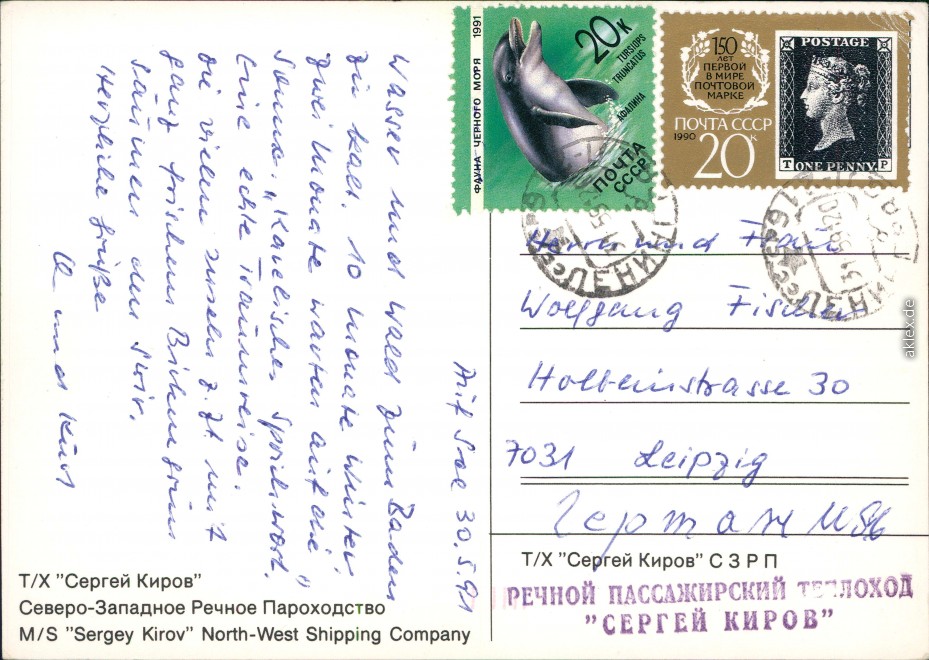 Auf See 30.5.91
Wasser und Wald zum Baden
zu kalt. 10 Monate Winter
zwei Monate warten auf die
Sonne. "Karelisches Sprichwort."
Eine echte Traumreise.
Die vielen Inseln z. Zt. mit
ganz frischem Birkengrün
säumen den Swir.
Herzliche Grüße
und Kurt
ФАУНА ЧЕРНОГО МОРЯ 1991
20к
TURSIOPS
TRUNCATUS
АФАЛИНА
ПОЧТА
СССР
150
ЛЕТ
ПЕРВОЙ
В МИРЕ
ПОЧТОВОЙ
МАРКЕ
ПОЧТА СССР
1990
20к
POSTAGE
T ONE PENNY. P
Herrn und Frau
Wolfgang Fischer
Holbeinstrasse 30
7031 Leipzig
Германия
Т/Х "Сергей Киров" С З Р П
РЕЧНОЙ ПАССАЖИРСКИЙ ТЕПЛОХОД
"СЕРГЕЙ КИРОВ"
Т/Х "Сергей Киров"
Северо-Западное Речное Пароходство
M/S "Sergey Kirov" North-West Shipping Company
aklex.de